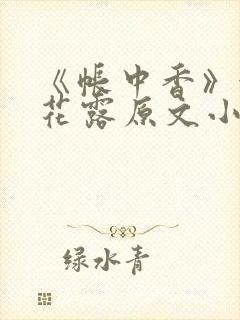 《帐中香》
花露原文小
绿水青